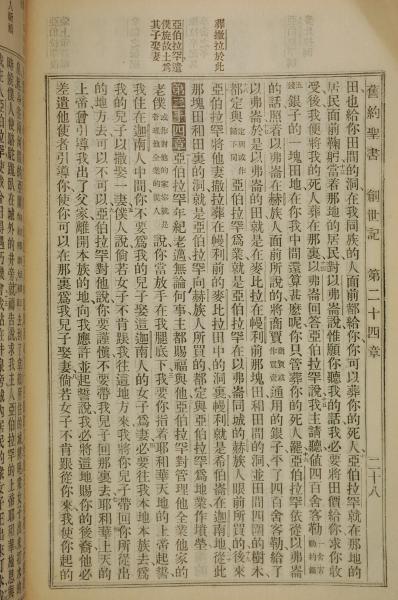 舊約聖書 創世記 第二十四章 二十八
撒拉於此
亞伯拉罕遣
僕旋故土為
其子娶妻
田也給你田間的洞在我同族的人面前都給你你可以葬你的死人亞伯拉罕就在那地的
居民面前鞠躬當着那地的居民對以弗崙說惟願你聽我的話我必要將田價給你求你收
受後我便將我的死人葬在那裏以弗崙回答亞伯拉罕說我主請聽值四百舍客勒
銀子的一塊田地在你我中間還算甚麽呢你只管葬你的死人罷亞伯拉罕依從以弗崙
的話照着以弗崙在赫族人面前所說的將商賈通用的銀子平了四百舍客勒給了
以弗崙於是以弗崙的田就是在麥比拉在幔利前那塊田和田間的洞並田間四圍的樹木
都定與亞伯拉罕爲業就是亞伯拉罕在以弗崙同城的赫族人眼前所買的後來
亞伯拉罕將他妻撒拉葬在幔利前的麥比拉田中的洞裏幔利就是希伯崙在迦南地從此
那塊田和田裏的洞就是亞伯拉罕向赫族人所買的都定與亞伯拉罕爲地業作墳塋
第二十四章亞伯拉罕年紀老邁無論何事主都賜福與他亞伯拉罕對管理他全業家的
老僕說你當放手在我腿底下我要你指着耶和華天地的上帝起誓
我住在迦南人中間你不要爲我的兒子娶這迦南人的女子爲妻必要往我本地本族去爲
我的兒子以撒娶一妻僕人說倘若女子不肯跟我往這地方來我將你兒子帶回你所從出
的地方去可以不可以亞伯拉罕對他說你要謹慎不要帶我兒子回那裏去耶和華上天的
上帝曾引導我出了父家離開本族的地向我應許並起誓說我必將這地賜你的後裔他必
差遣他使者引導你使你可以在那裏爲我兒子娶妻倘若女子不肯跟你來我使你起的